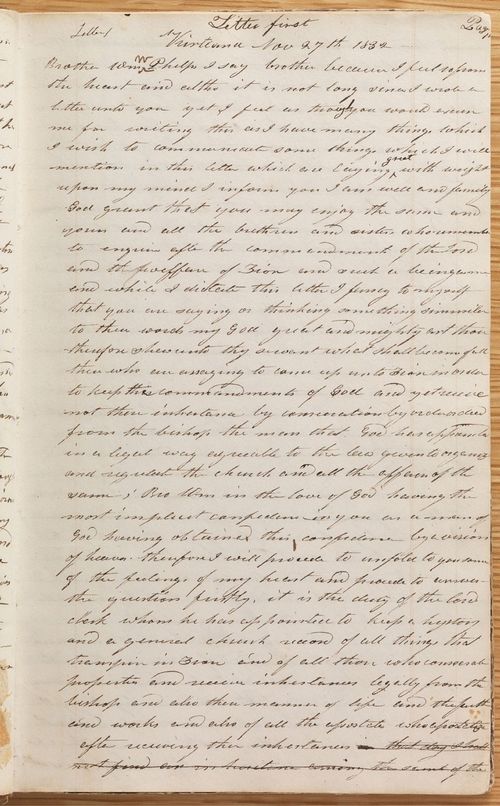 Letter first
Letter 1 Page
Kirtland Nov 27th 1832
Brother Wm W Phelps I say brother because I feel so from
the heart and altho it is not long since I wrote a
letter unto you yet I feel as though you would excuse
me for writing this as I have many things which
I wish to communicate some things which I will
mention in this letter which are laying great with weight
upon my mind I inform you I am well and family
God grant that you may enjoy the same and
yours and all the brethren and sisters who remember
to enquire after the commandments of the Lord
and the welfare of Zion and such a being as me
and while I dictate this letter I fancy to myself
that you are saying or thinking something simmiler
to these words my God great and mighty art thou
therefore shew unto thy servant what shall becom of all
those who are assaying to come up unto Zion in order
to keep the commandments of God and yet receive
not there inheritance by consecration by order or deed
from the bishop the man that God has appointed
in a legal way agreeable to the law given to organize
and regulate the church and all the affairs of the
same; Bro Wm in the love of God having the
most implicit confidence in you as a man of
God having obtained this confidence by a vision
of heaven therefore I will procede to unfold to you some
of the feelings of my heart and procede to answer
the question firstly, it is the duty of the lord
clerk whom he has appointed to keep a hystory
and a general church record of all things that
transpire in Zion and of all those who consecrate
properties and receive inheritances legally from the
bishop and also there manner of life and the faith
and works and also of all the apostates who apostatize
after receiving ther inheritances that day shall
not find an inheritance among the saints of the